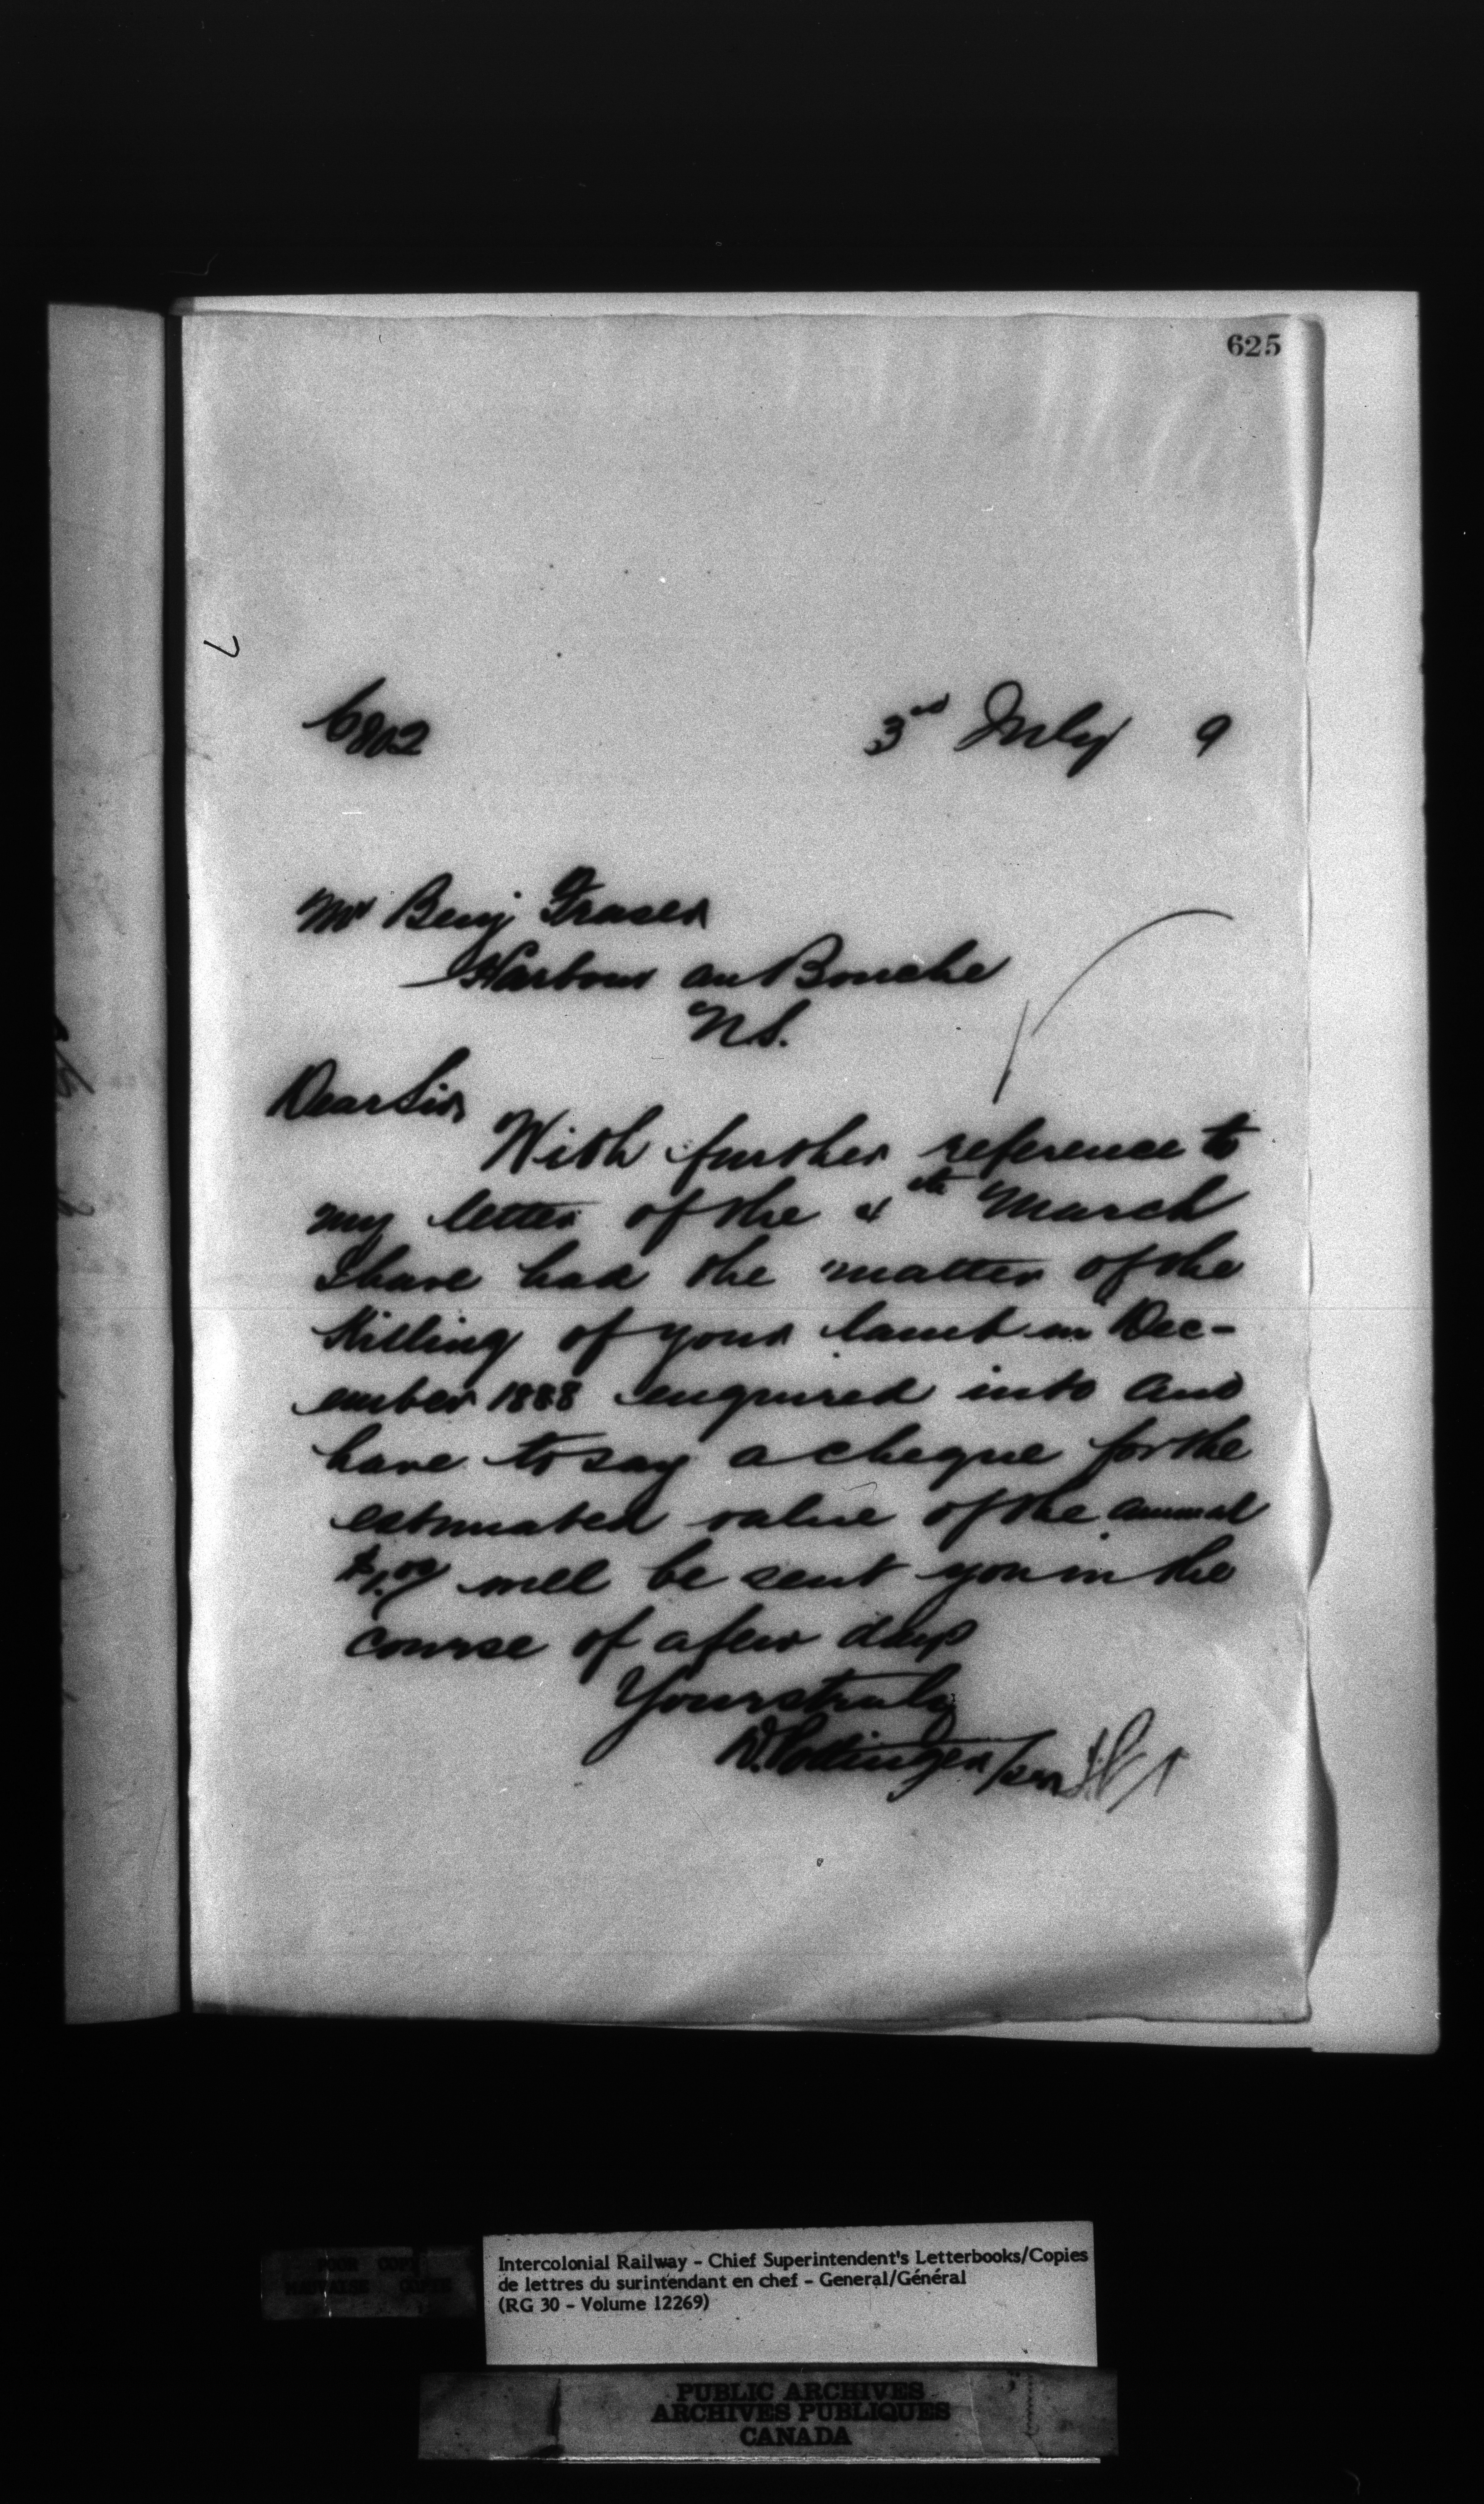 625
6802 3rd July 9
Mr Benj Fraser
Harbour au Bouche
N.S.
Dear Sir
With further reference to
my letter of the 4th March
I have had the matter of the
killing of your lamb in Dec-
ember 1888 enquired into and
have to say a cheque for the
estimated value of the animal
$1.00 will be sent you in the
course of a few days
Yours truly
D. Pottinger
POOR COPY
MAUVAISE COPIE
Intercolonial Railway - Chief Superintendent's Letterbooks/Copies
de lettres du surintendant en chef - General/Général
(RG 30 - Volume 12269)
PUBLIC ARCHIVES
ARCHIVES PUBLIQUES
CANADA